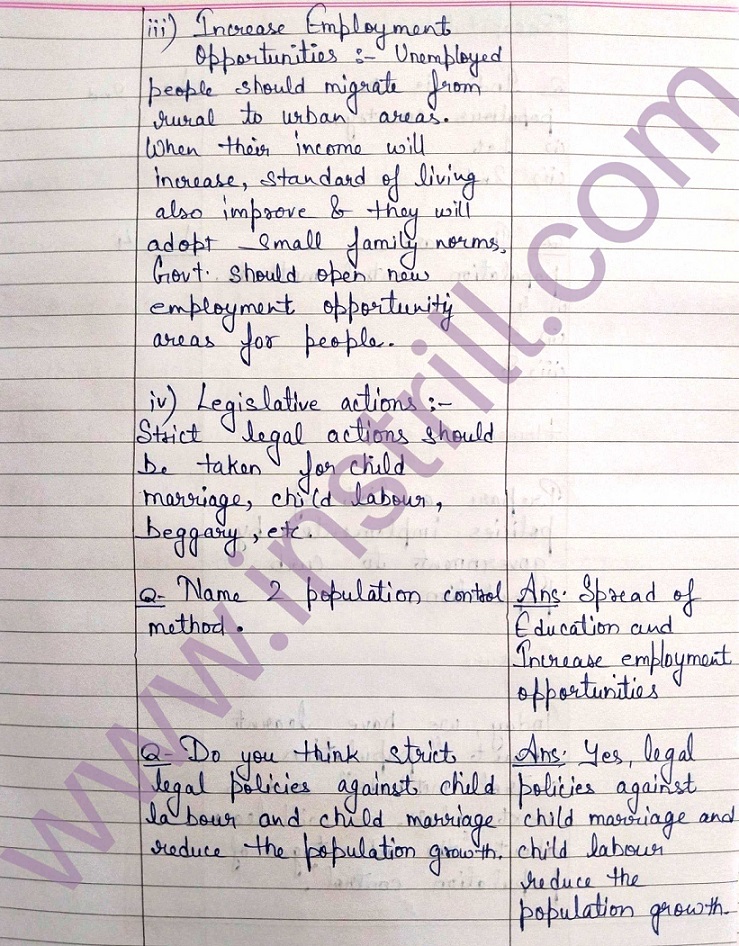 iii) Increase Employment
Opportunities :- Unemployed
people should migrate from
rural to urban areas.
When their income will
increase, standard of living
also improve & they will
adopt small family norms.
Govt. should open new
employment opportunity
areas for people.
iv) Legislative actions :-
Strict legal actions should
be taken for child
marriage, child labour,
beggary, etc.
Q- Name 2 population control
method.
Ans. Spread of
Education and
Increase employment
opportunities
Q- Do you think strict
legal policies against child
labour and child marriage
reduce the population growth.
Ans. Yes, legal
policies against
child marriage and
child labour
reduce the
population growth.
www.instrill.com